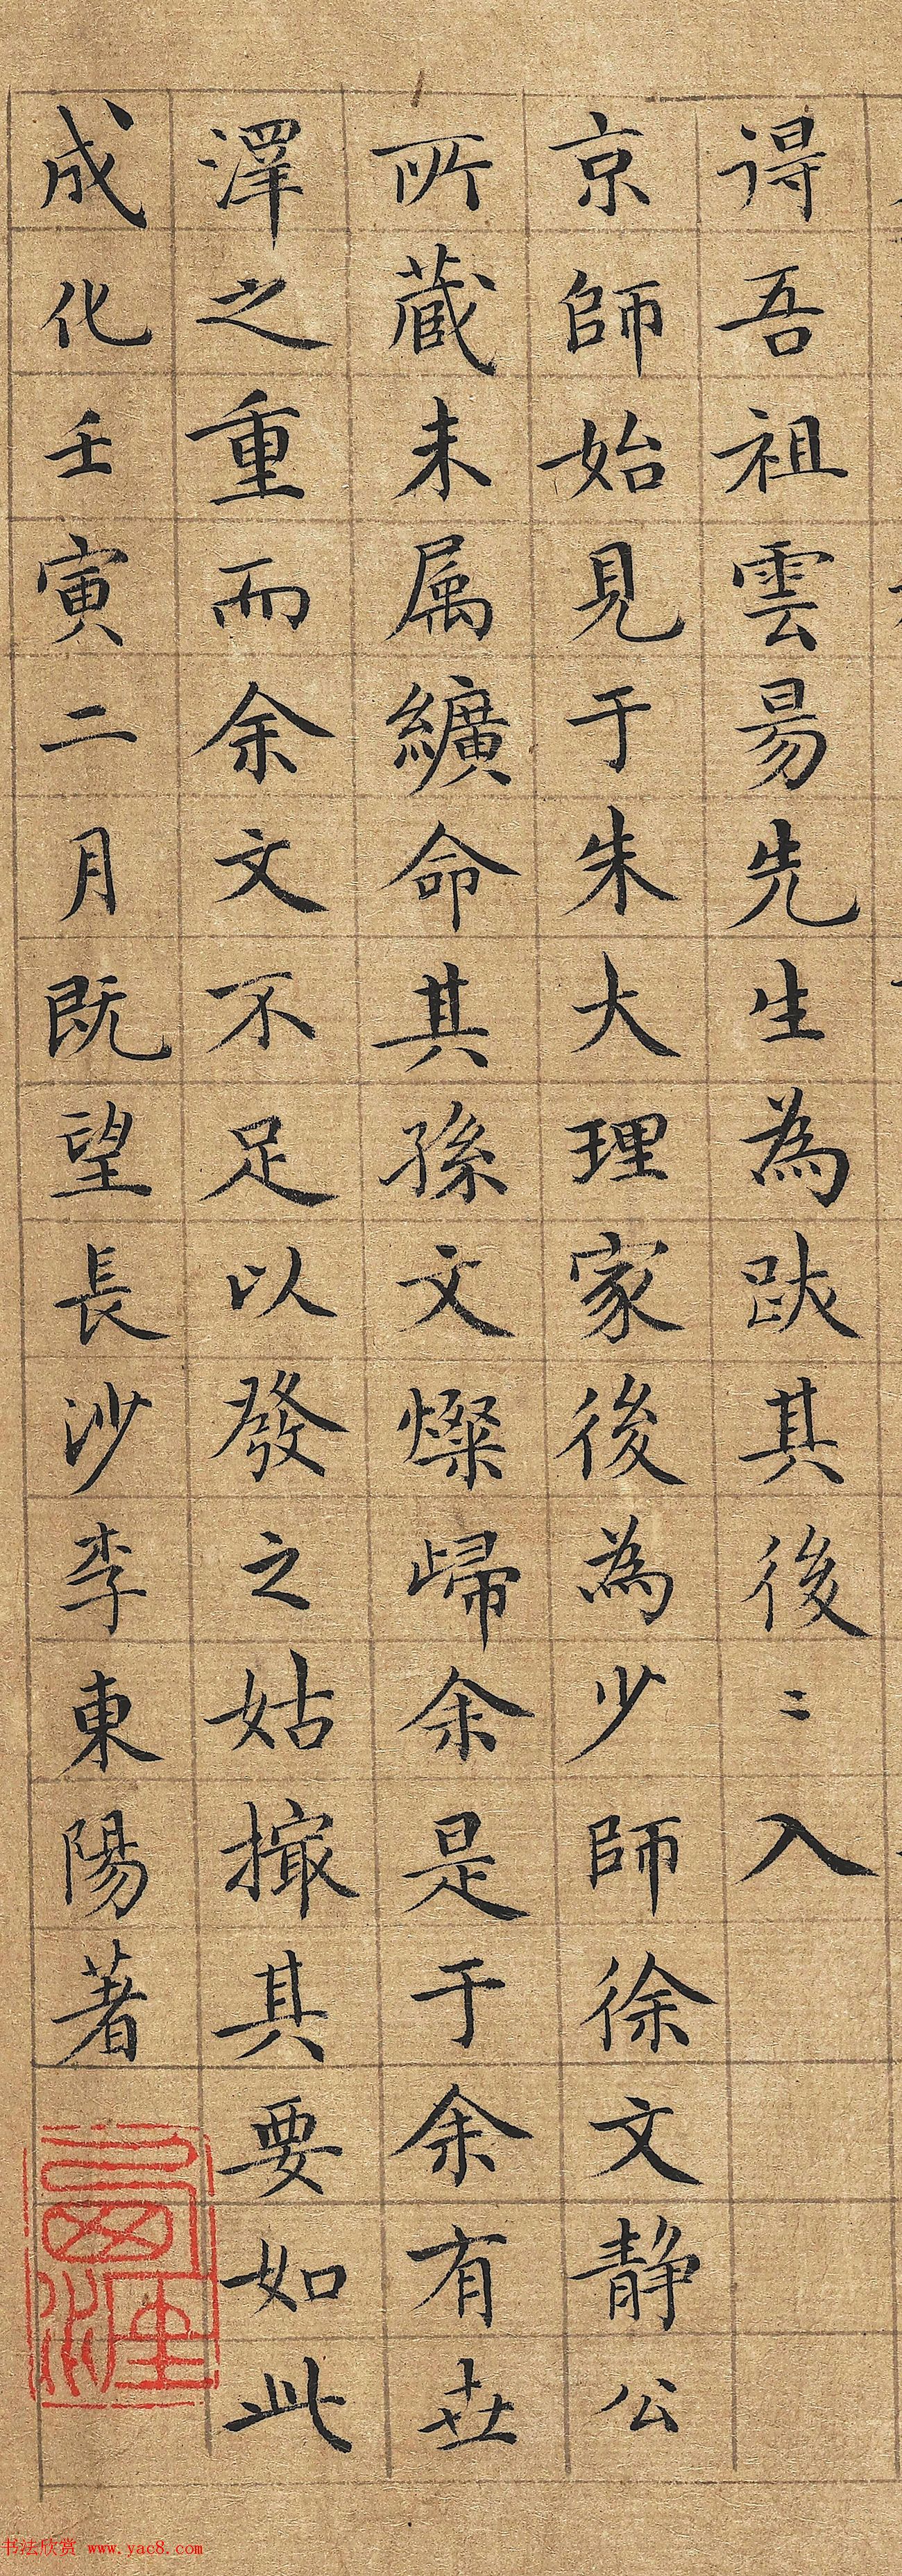 得吾祖雲昜先生為跋其後〻入
京師始見于朱大理家後為少師徐文靜公
所蔵未属纊命其孫文燦歸余是于余有世
澤之重而余文不足以發之姑撮其要如此
成化壬寅二月既望長沙李東陽著
书法欣赏 www.yac8.com